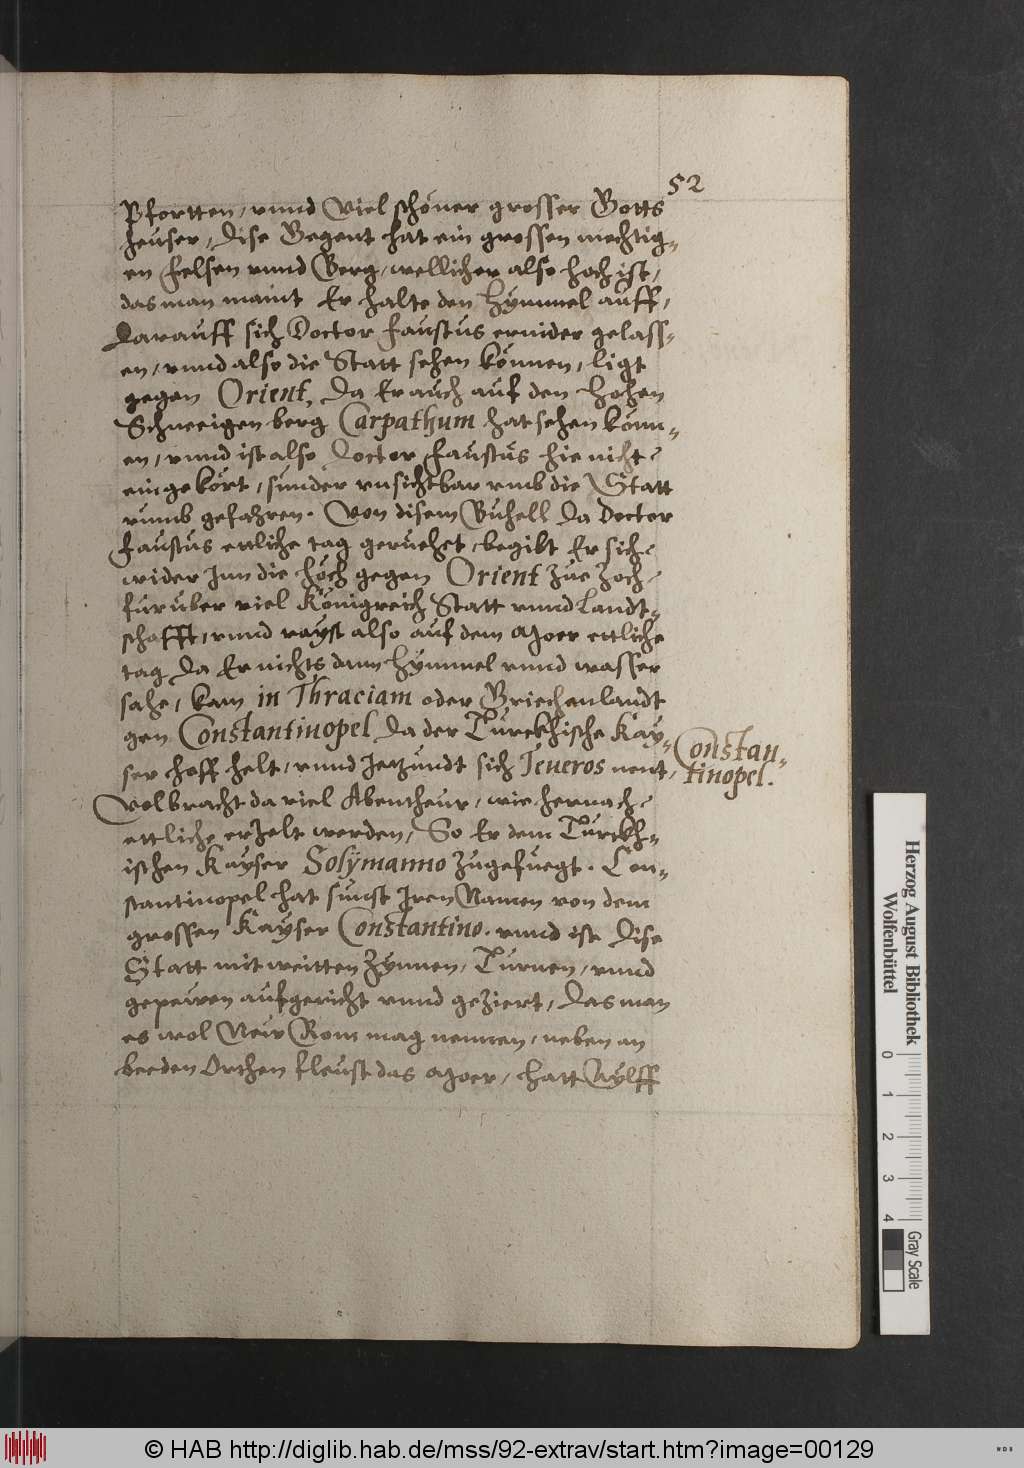 52
Pfortten, vnnd Viel schöner grosser Gotts
heuser, Dise Gegent hat ein grossen mechtig-
en Felsen vnnd Berg, wellicher also hoch ist,
das man maint Er halte den Hymmel auff,
Darauff sich Doctor Faustus ernider gelass-
en, vnnd also die Statt sehen können, ligt
gegen Orient, Da Er auch auf den Hohen
Schneeigen berg Carpathum hat sehen könn-
en, vnnd ist also Doctor Faustus hie nicht
eingekört, sunder vnsichtbar vmb die Statt
vmb gefahren. Von disem Buhell Da Doctor
Faustus ettliche tag geruehet, begibt Er sich
wider Jnn die höch gegen Orient Zue Zoch
furuber viel Königreich Statt vnnd Landt-
schafft, vnnd rayst also auf dem Moer ettliche
tag Da Er nichts dann Hymmel vnnd wasser
sahe, kam in Thraciam oder Griechenlandt
gen Constantinopel Da der Türckhische Kay-
ser hoff helt, vnnd Jetzundt sich Teueros nent,
Constan-
tinopel.
Volbracht da viel Abentheur, wie hernach
ettliche erzelt werden, So Er dem Türckh-
ischen Kayser Solÿmanno zugefuegt. Con-
stantinopel hat sunst Jren Namen von dem
grossen Kayser Constantino. vnnd ist Dise
Statt mit weitten Zynnen, Turnen, vnnd
gepewen aufgericht vnnd geziert, Das man
es wol New Rom mag nennen, neben an
beeden Orthen fleust das Moer, hatt Aylff
Herzog August Bibliothek
Wolfenbüttel
0 1 2 3 4
Gray Scale
© HAB http://diglib.hab.de/mss/92-extrav/start.htm?image=00129